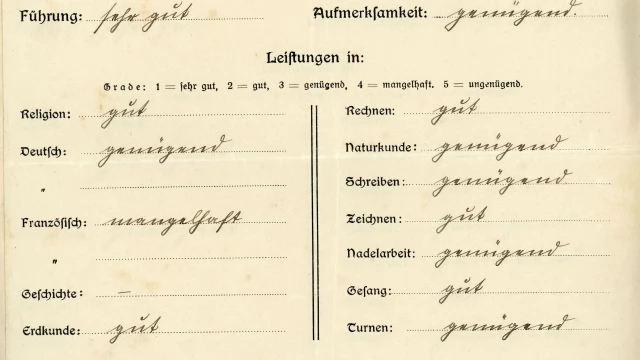 Führung: sehr gut Aufmerksamkeit: genügend.
Leistungen in:
Grade: 1 = sehr gut, 2 = gut, 3 = genügend, 4 = mangelhaft. 5 = ungenügend.
Religion: gut
Deutsch: genügend
"
Französisch: mangelhaft
"
Geschichte: —
Erdkunde: gut
Rechnen: gut
Naturkunde: genügend
Schreiben: genügend
Zeichnen: gut
Nadelarbeit: genügend
Gesang: gut
Turnen: genügend